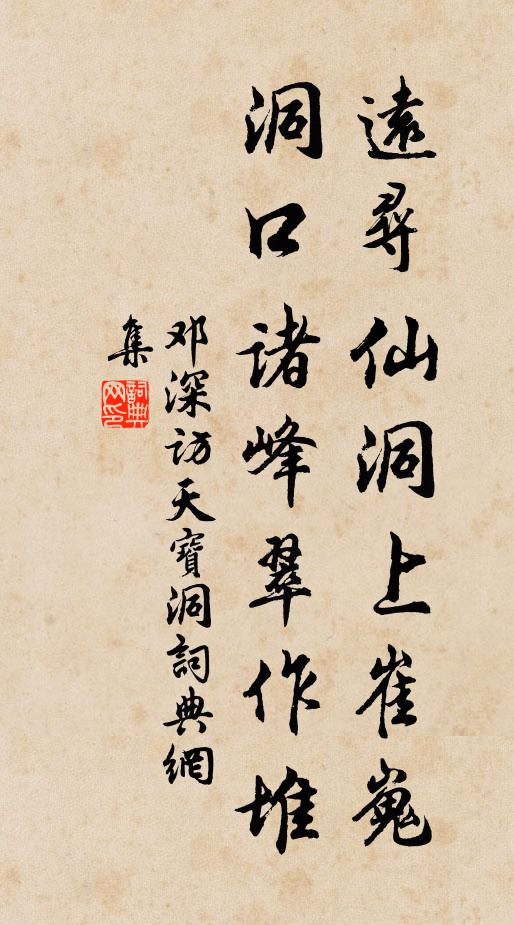 遠尋仙洞上崔嵬
洞口諸峰翠作堆
邓深访天寶洞詞典網
集
詞典網印